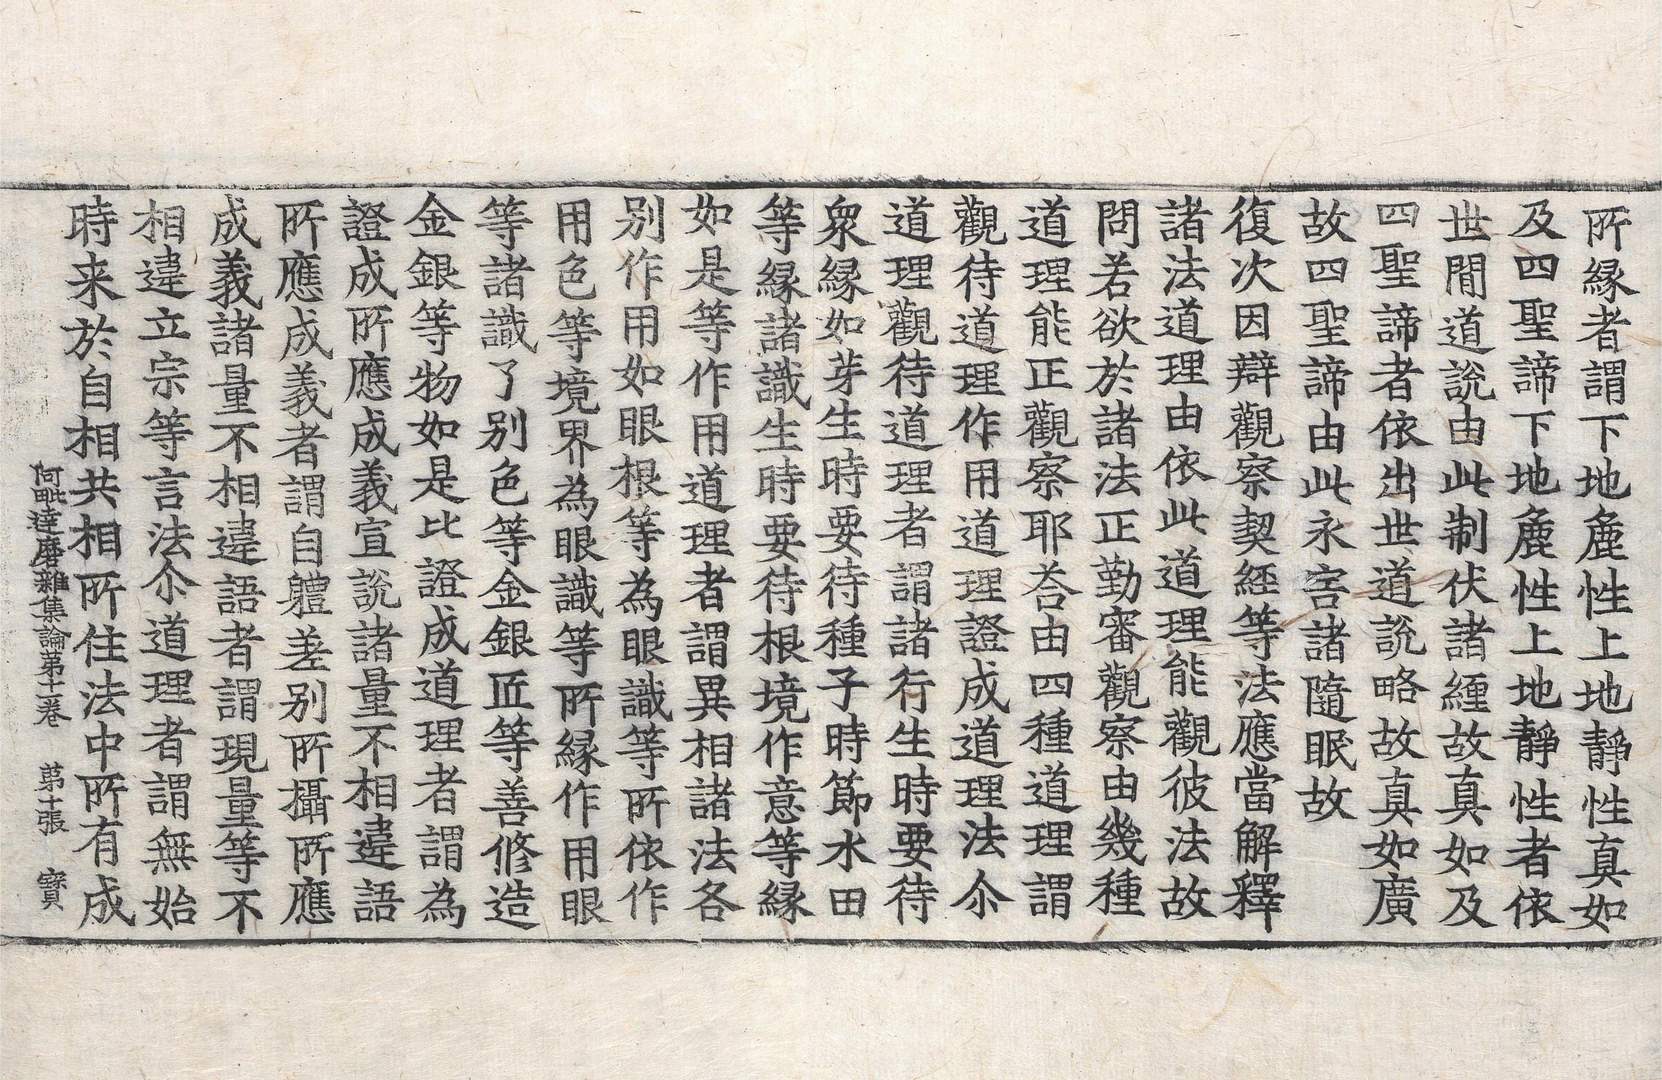 所縁者謂下地麁性上地靜性真如
及四聖諦下地麁性上地靜性者依
世間道說由此制伏諸纏故真如及
四聖諦者依出世道說略故真如廣
故四聖諦由此永害諸隨眠故
復次因辯觀察契經等法應當解釋
諸法道理由依此道理能觀彼法故
問若欲於諸法正勤審觀察由幾種
道理能正觀察耶荅由四種道理謂
觀待道理作用道理證成道理法尒
道理觀待道理者謂諸行生時要待
衆縁如芽生時要待種子時節水田
等縁諸識生時要待根境作意等縁
如是等作用道理者謂異相諸法各
別作用如眼根等為眼識等所依作
用色等境界為眼識等所縁作用眼
等諸識了別色等金銀匠等善修造
金銀等物如是比證成道理者謂為
證成所應成義宣說諸量不相違語
所應成義者謂自軆差別所攝所應
成義諸量不相違語者謂現量等不
相違立宗等言法尒道理者謂無始
時来於自相共相所住法中所有成
阿毗達磨雜集論第十一卷 第十張 寳